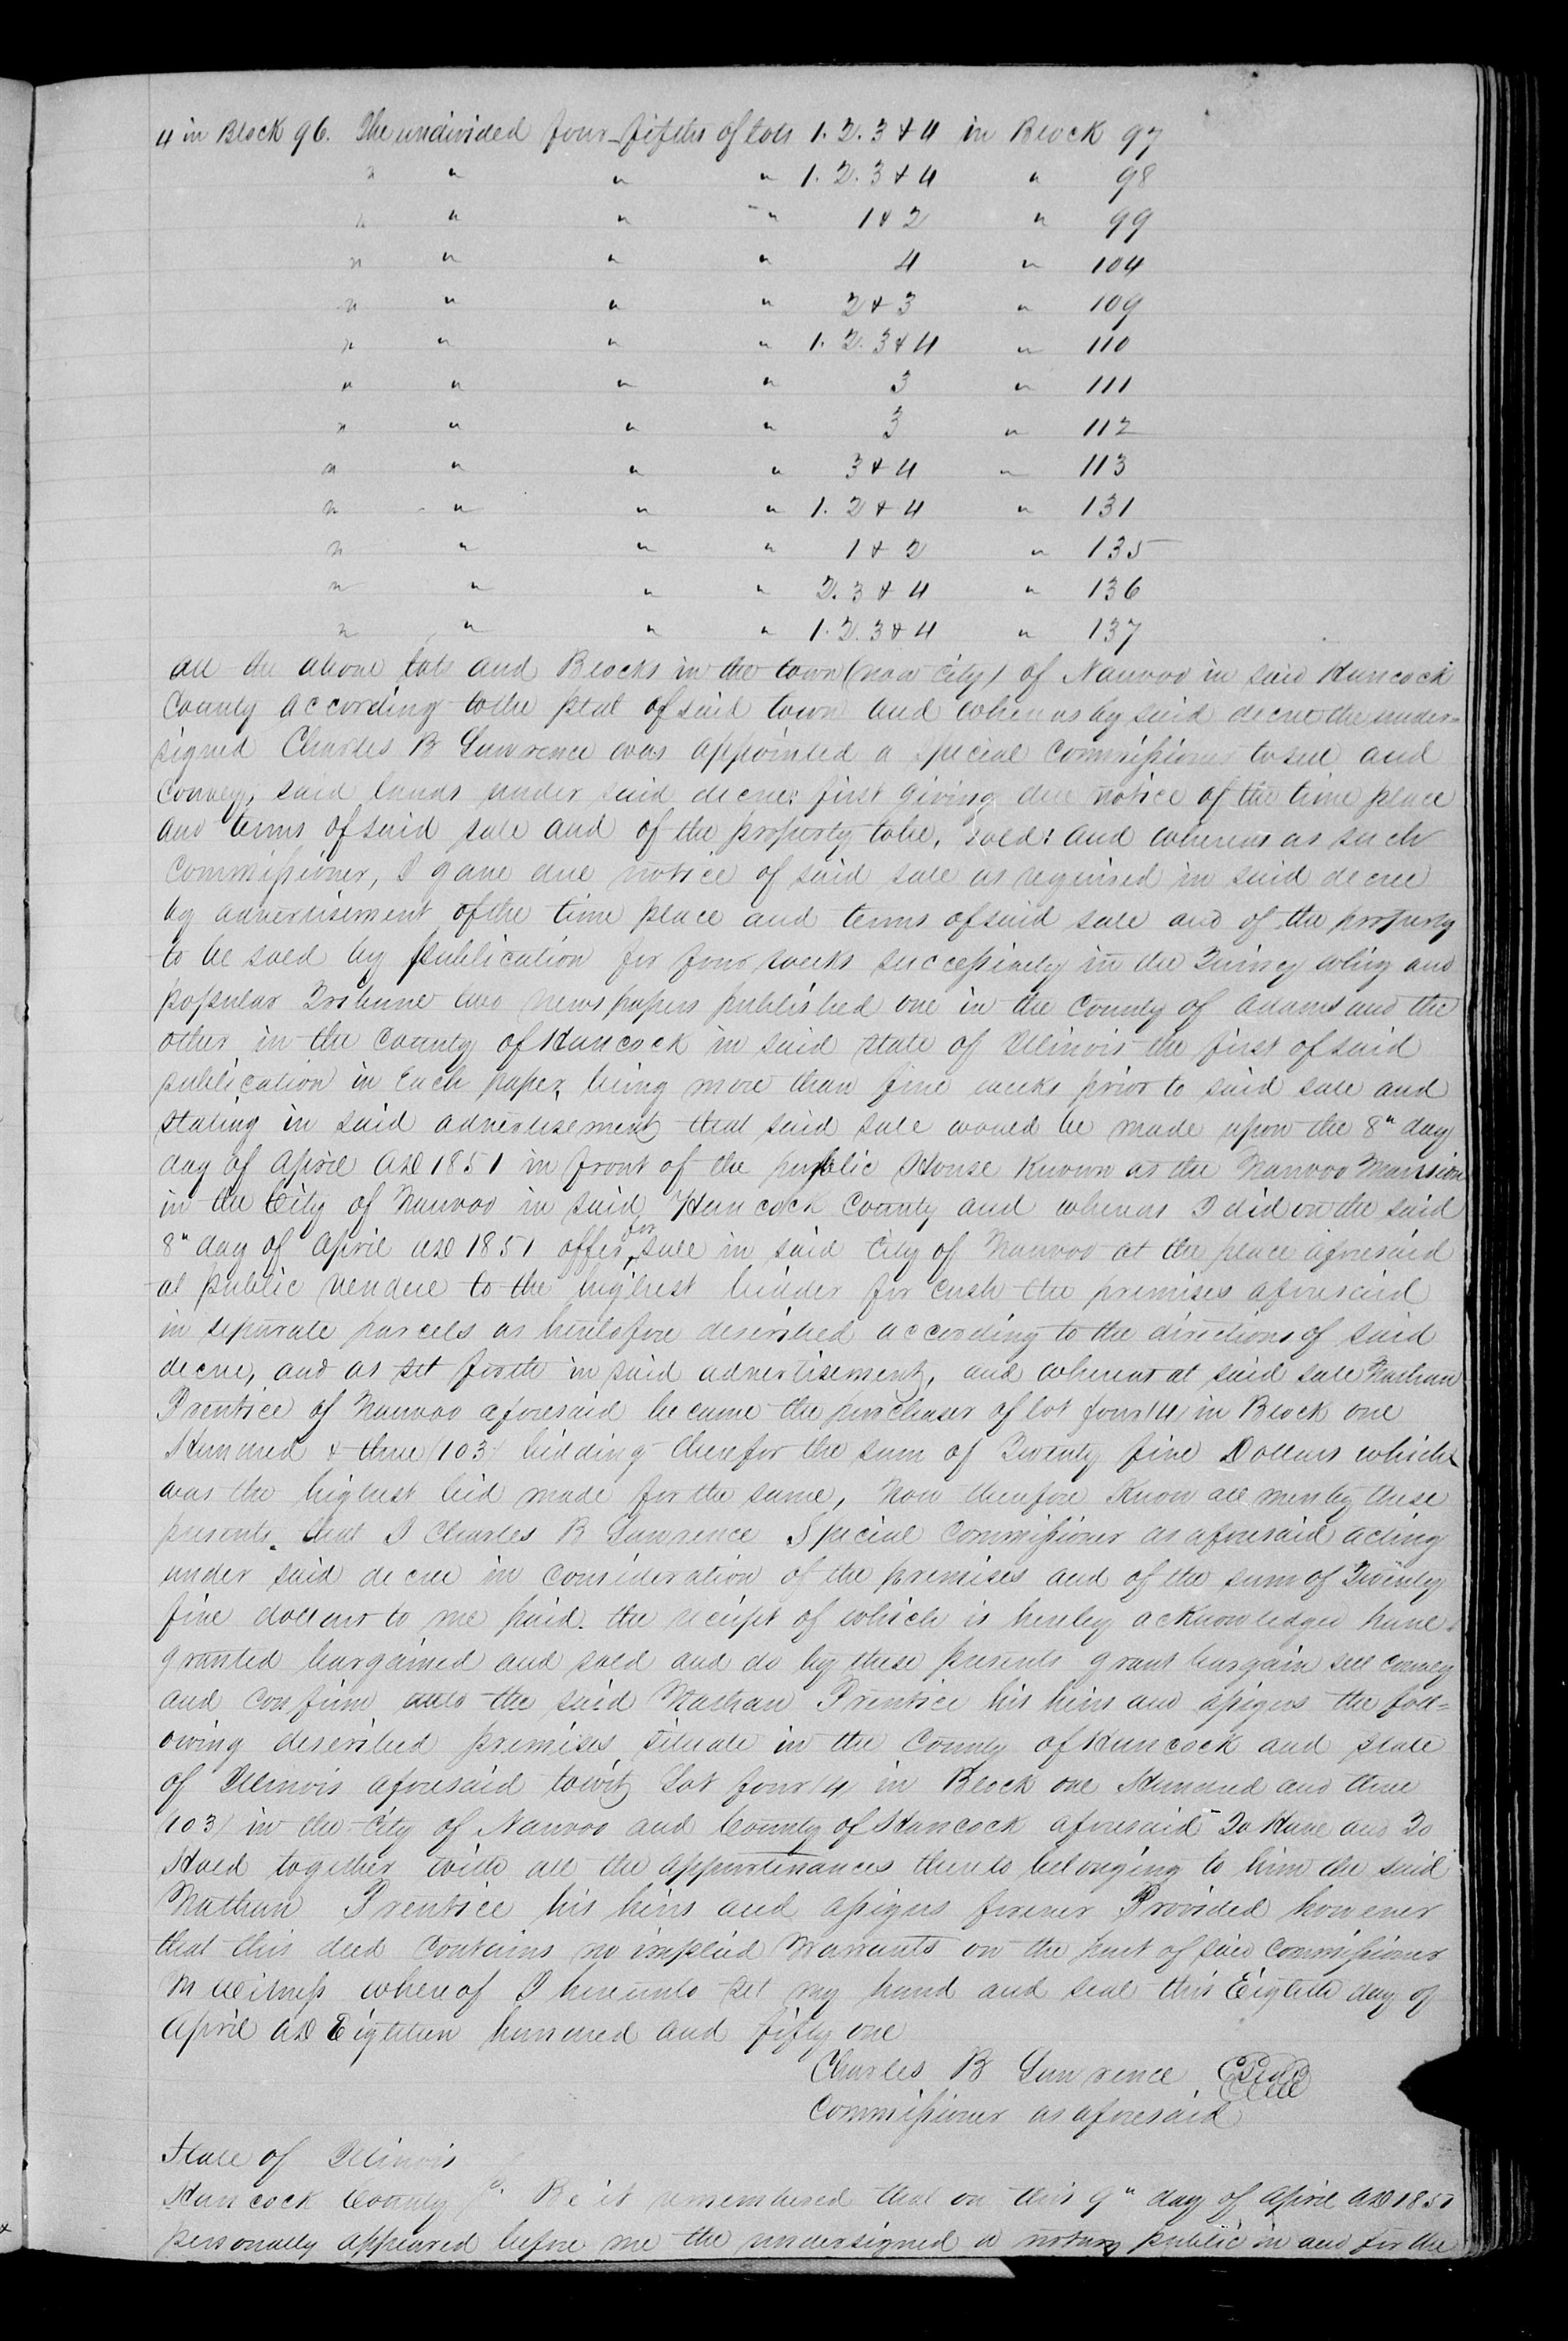 4 in Block 96. The undivided four-fifths of lots 1. 2. 3 & 4 in Block 97
" " " " 1. 2. 3 & 4 " 98
" " " " 1 & 2 " 99
" " " " 4 " 104
" " " " 2 & 3 " 109
" " " " 1. 2. 3 & 4 " 110
" " " " 3 " 111
" " " " 3 " 112
" " " " 3 & 4 " 113
" " " " 1. 2 & 4 " 131
" " " " 1 & 2 " 135
" " " " 2. 3 & 4 " 136
" " " " 1. 2. 3 & 4 " 137
all the above lots and Blocks in the town (now City) of Nauvoo in said Hancock
County according to the plat of said town and whereas by said decree the under=
signed Charles B Lawrence was appointed a special Commissioner to sell and
Convey, said lands under said decree: first giving due notice of the time place
and terms of said sale and of the property to be, sold: and whereas as such
Commissioner, I gave due notice of said sale as required in said decree
by advertisement of the time place and terms of said sale and of the property
to be sold by publication for four weeks successively in the Quincy whig and
popular Tribune two newspapers published one in the County of Adams and the
other in the County of Hancock in said state of Illinois the first of said
publication in Each paper, being more than five weeks prior to said sale and
stating in said advertisement that said sale would be made upon the 8" day
day of April AD 1851 in front of the public House Known as the Nauvoo Mansion
in the City of Nauvoo in said Hancock County and whereas I did on the said
8" day of April AD 1851 offer for sale in said City of Nauvoo at the place aforesaid
at public vendue to the highest bidder for cash the premises aforesaid
in separate parcels as heretofore described according to the directions of said
decree, and as set forth in said advertisement, and whereas at said sale Nathan
Prentice of Nauvoo aforesaid became the purchaser of lot four (4) in Block one
Hundred & three (103) bidding therefor the sum of Twenty five Dollars which
was the highest bid made for the same, Now therefore Know all men by these
presents. that I Charles B Lawrence Special Commissioner as aforesaid acting
under said decree in Consideration of the premises and of the sum of Twenty
five dollars to me paid. the receipt of which is hereby acknowledged have
granted bargained and sold and do by these presents grant bargain sell convey
and Confirm unto the said Nathan Prentice his heirs and assigns the foll=
owing described premises, situate in the County of Hancock and state
of Illinois aforesaid towit Lot four (4) in Block one Hundred and three
(103) in the City of Nauvoo and County of Hancock aforesaid To Have and To
Hold together with all the appurtenances thereto belonging to him the said
Nathan Prentice his heirs and assigns forever Provided however
that this deed Contains no implied Warrants on the part of said Commissioner
In witness whereof I hereunto set my hand and seal this Eighth day of
April AD Eighteen hundred and fifty one
Charles B Lawrence Seal
Commissioner as aforesaid
State of Illinois
Hancock County Be it remembered that on this 9" day of April AD 1851
personally appeared before me the undersigned a notary public in and for the